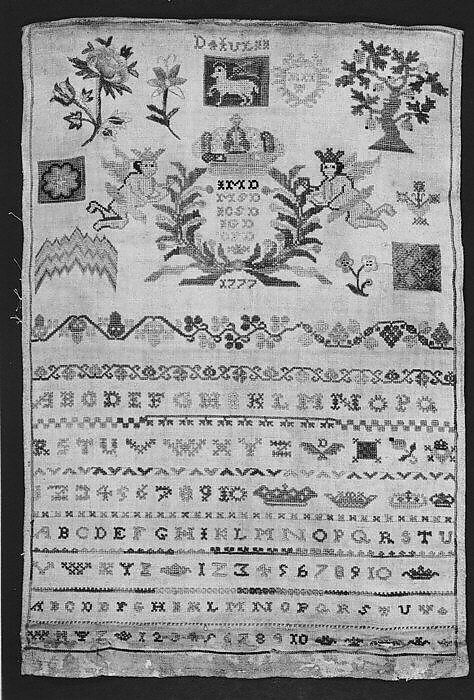 IMD
MSD
1777
ABCDEFGHIKLMNOPQ
RSTUVWXYZ
1 2 3 4 5 6 7 8 9 10
ABCDEFGHIKLMNOPQRSTU
VWXYZ 1 2 3 4 5 6 7 8 9 10
ABCDEFGHIKLMNOPQRSTUVW
XYZ 1 2 3 4 5 6 7 8 9 10